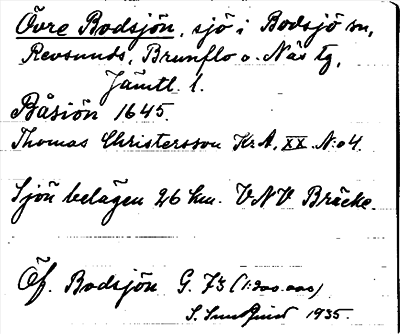 Övre Bodsjön, sjö i Bodsjö sn,
Revsunds, Brunflo o. Näs tg,
Jämtl. l.
Båsiön 1645.
Thomas Christersson KrA, XX. N:o 4.
Sjön belägen 26 km. VNV Bräcke.
Öf. Bodsjön G. 73 (1:200.000)
S. Sundquist 1935.